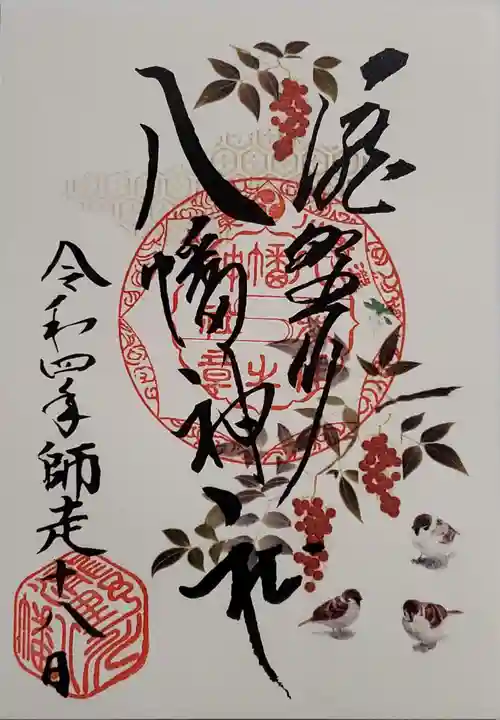 瀧埜川
八幡神社
令和四年師走十八日